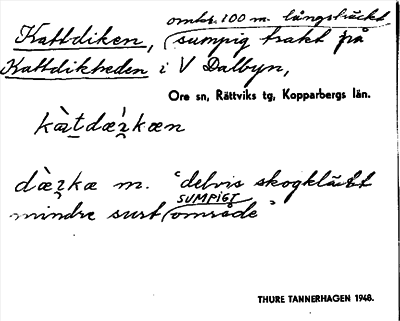 omkr. 100 m. långsträckt
Kattdiken, sumpig trakt på
Kattdikheden i V Dalbyn,
Ore sn, Rättviks tg, Kopparbergs län.
kæ̀tdæ̀ʒkæn
dæ̀ʒkæ m. "delvis skogklädt
SUMPIGT
mindre surt område"
THURE TANNERHAGEN 1948.